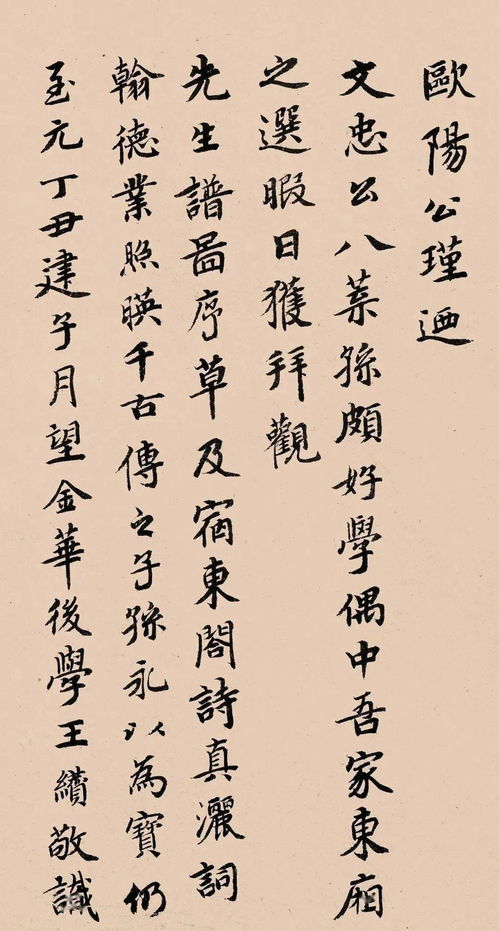 歐陽公瑾迺
文忠公八葉孫頗好學偶中吾家東廂
之選暇日獲拜觀
先生譜啚序草及宿東閣詩真灑詞
翰德業照暎千古傳之子孫永以為寶仍
至元丁丑建子月望金華後學王纘敬識